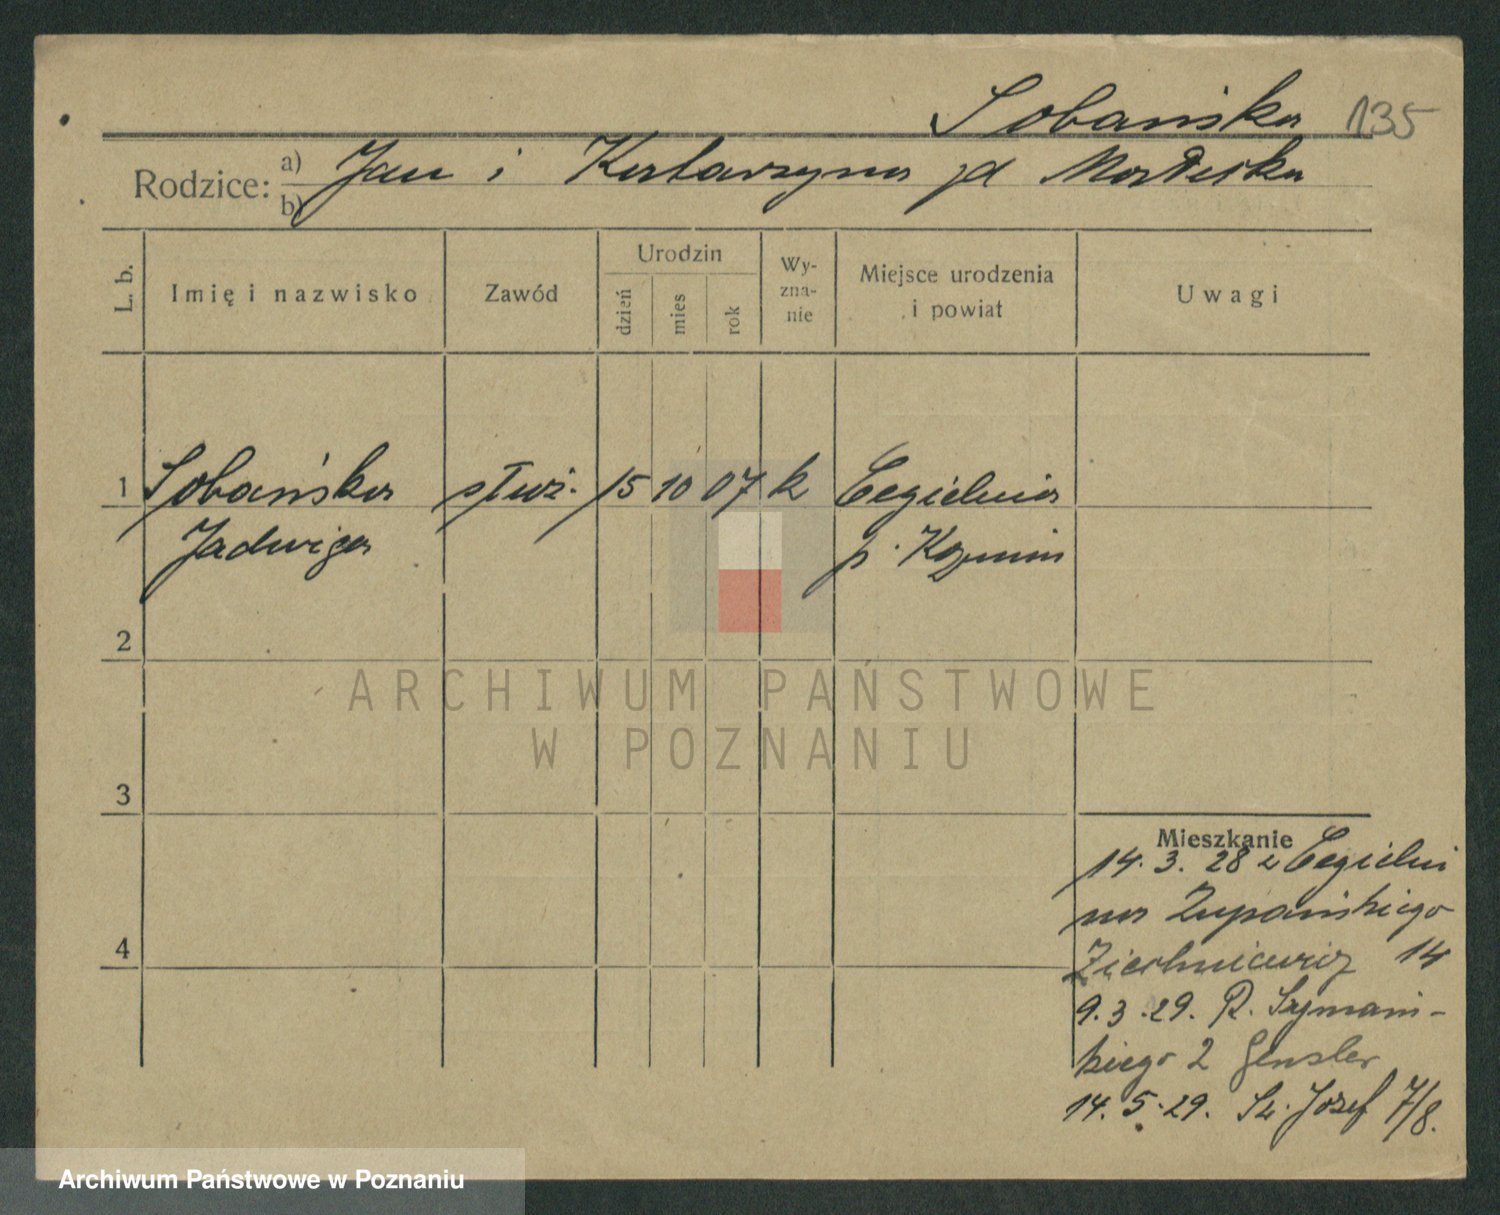 Sobańska 135
Rodzice: a) Jan i Katarzyna zd
b)
L. b.
Imię i nazwisko
Zawód
Urodzin
dzień
mies
rok
Wy-
zna-
nie
Miejsce urodzenia
i powiat
Uwagi
1 Sobańska służ. 15 10 07 k Cegielnia
Jadwiga p. Koźmin
2
3
4
Mieszkanie
14. 3. 28 z Cegielni
na Żupańskiego
14
9. 3. 29. R. Szymań-
kiego 2 Gensler
14. 5. 29. Św. Józef 7/8.
ARCHIWUM PAŃSTWOWE
W POZNANIU
Archiwum Państwowe w Poznaniu